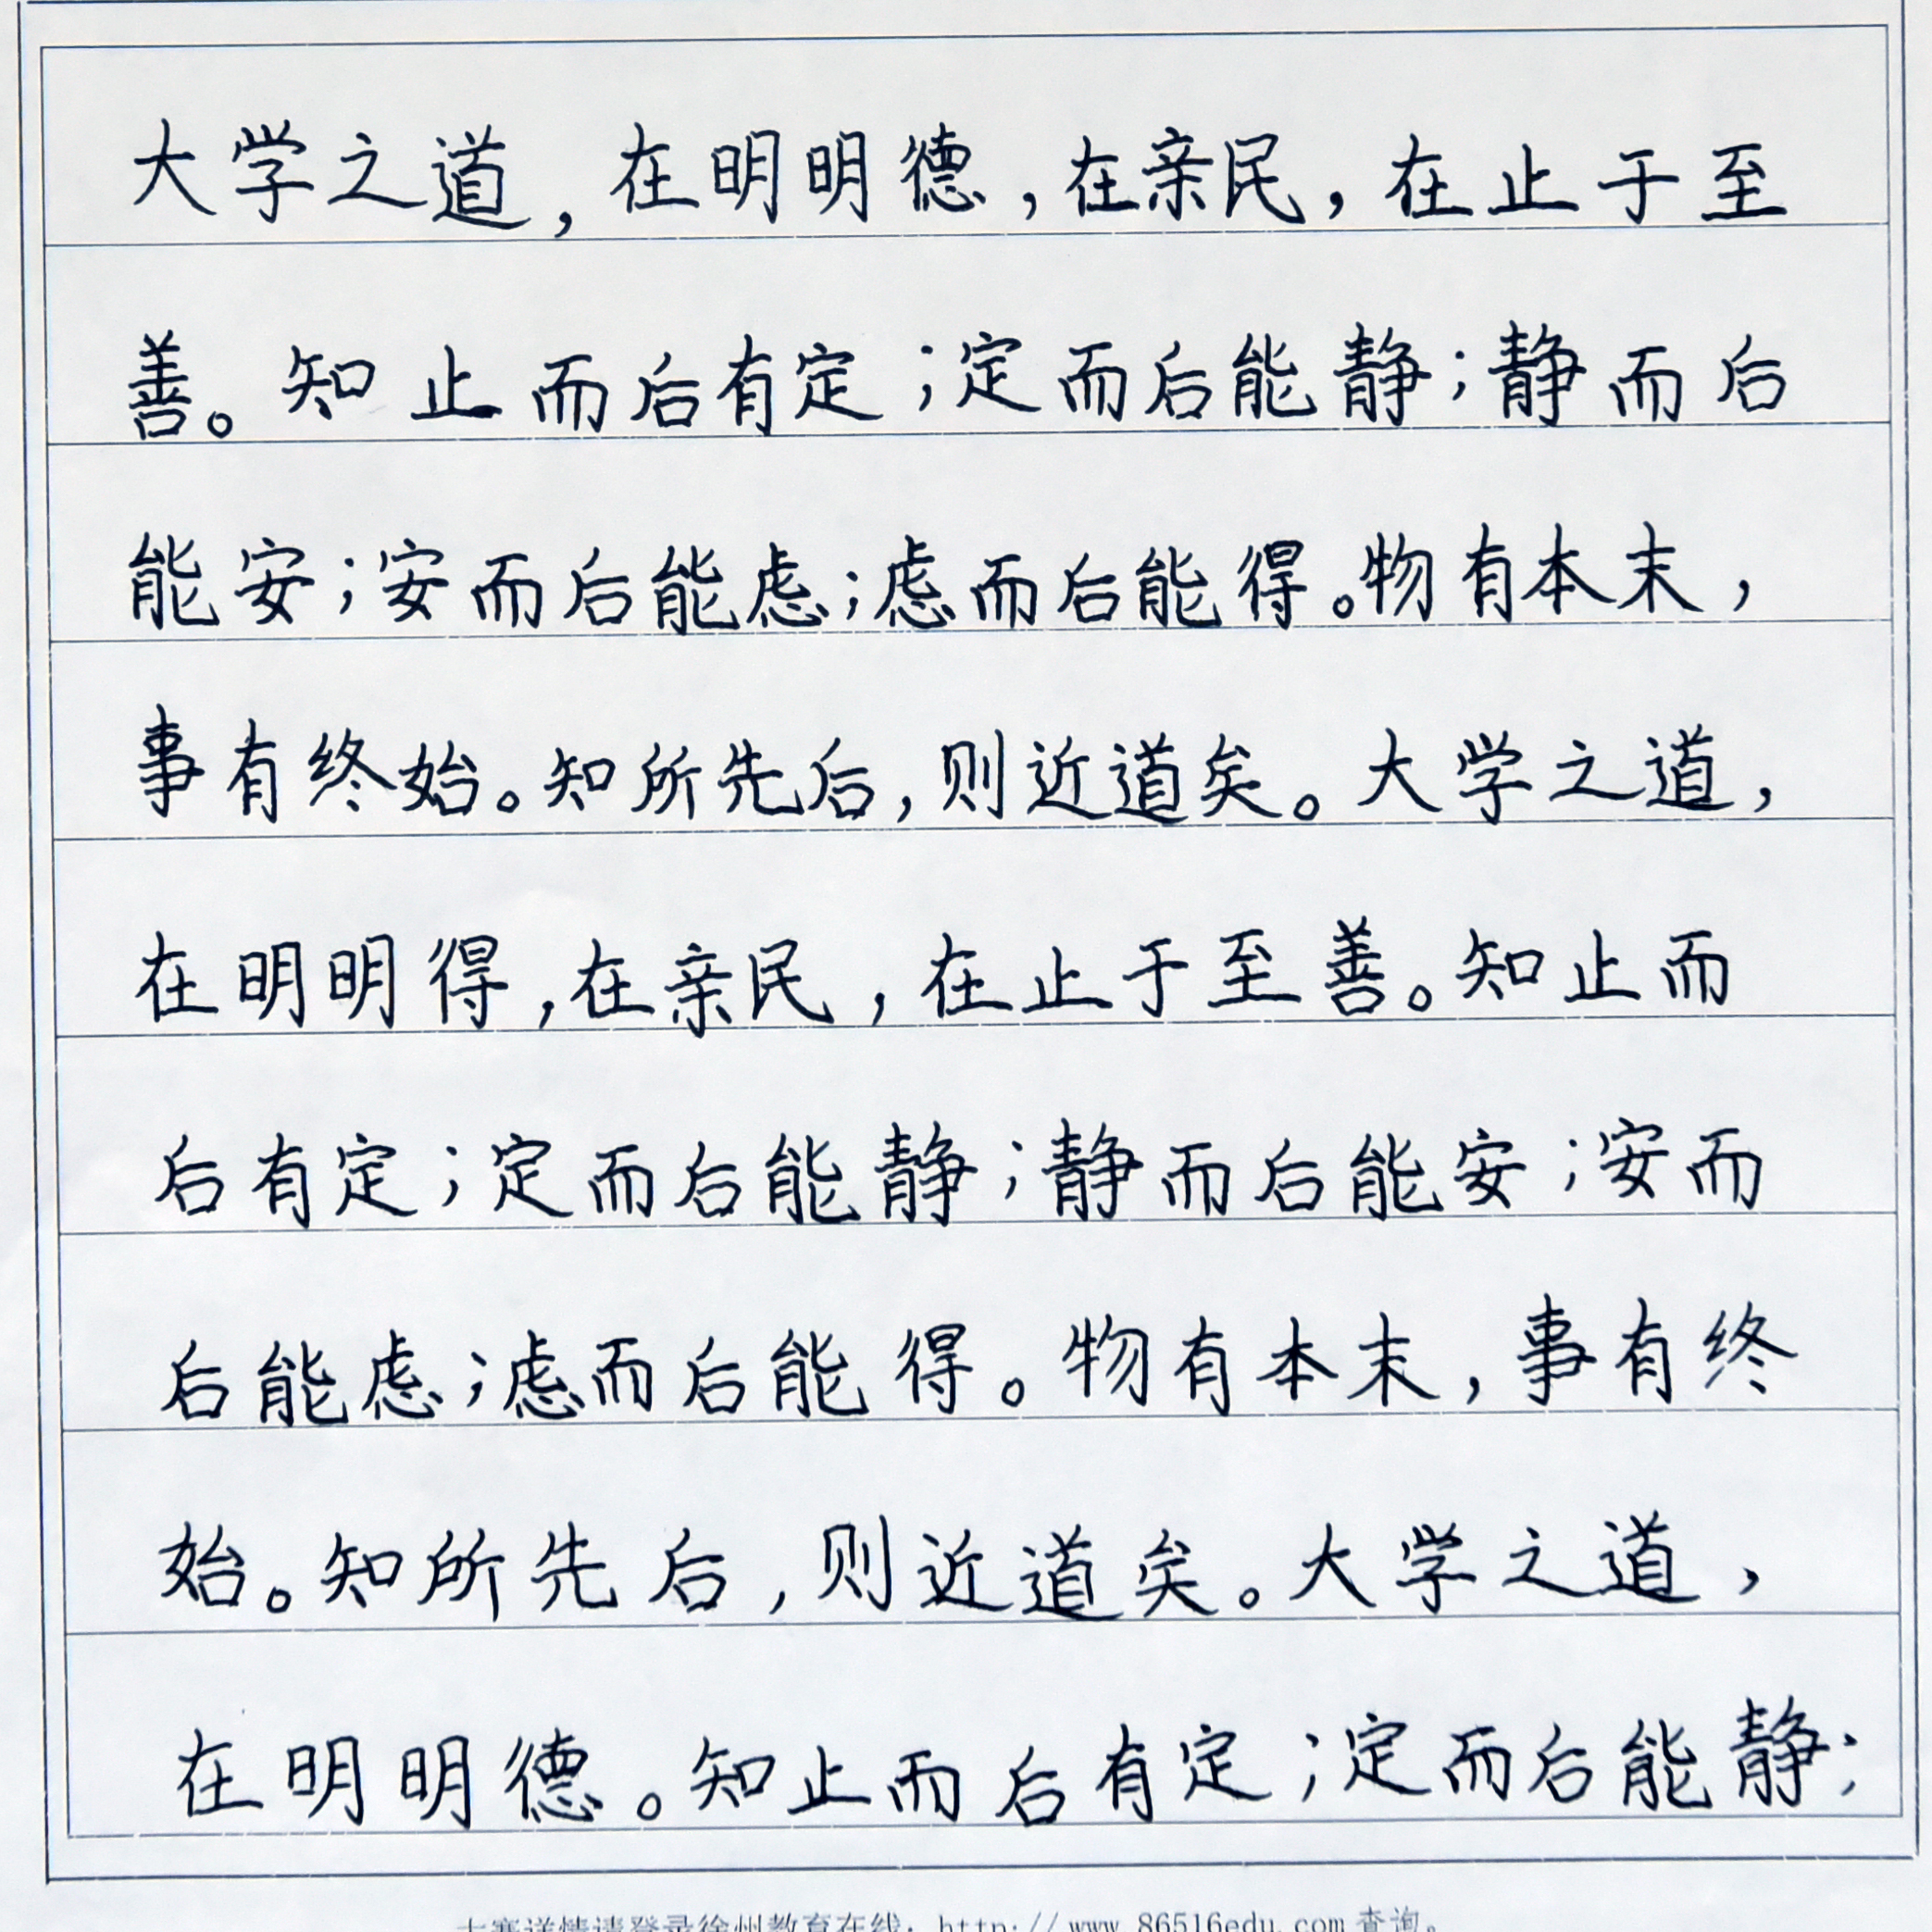 大学之道，在明明德，在亲民，在止于至
善。知止而后有定；定而后能静；静而后
能安；安而后能虑；虑而后能得。物有本末，
事有终始。知所先后，则近道矣。大学之道，
在明明得，在亲民，在止于至善。知止而
后有定；定而后能静；静而后能安；安而
后能虑；虑而后能得。物有本末，事有终
始。知所先后，则近道矣。大学之道，
在明明德。知止而后有定；定而后能静；
大赛详情请登录徐州教育在线：http://www.86516edu.com查询。